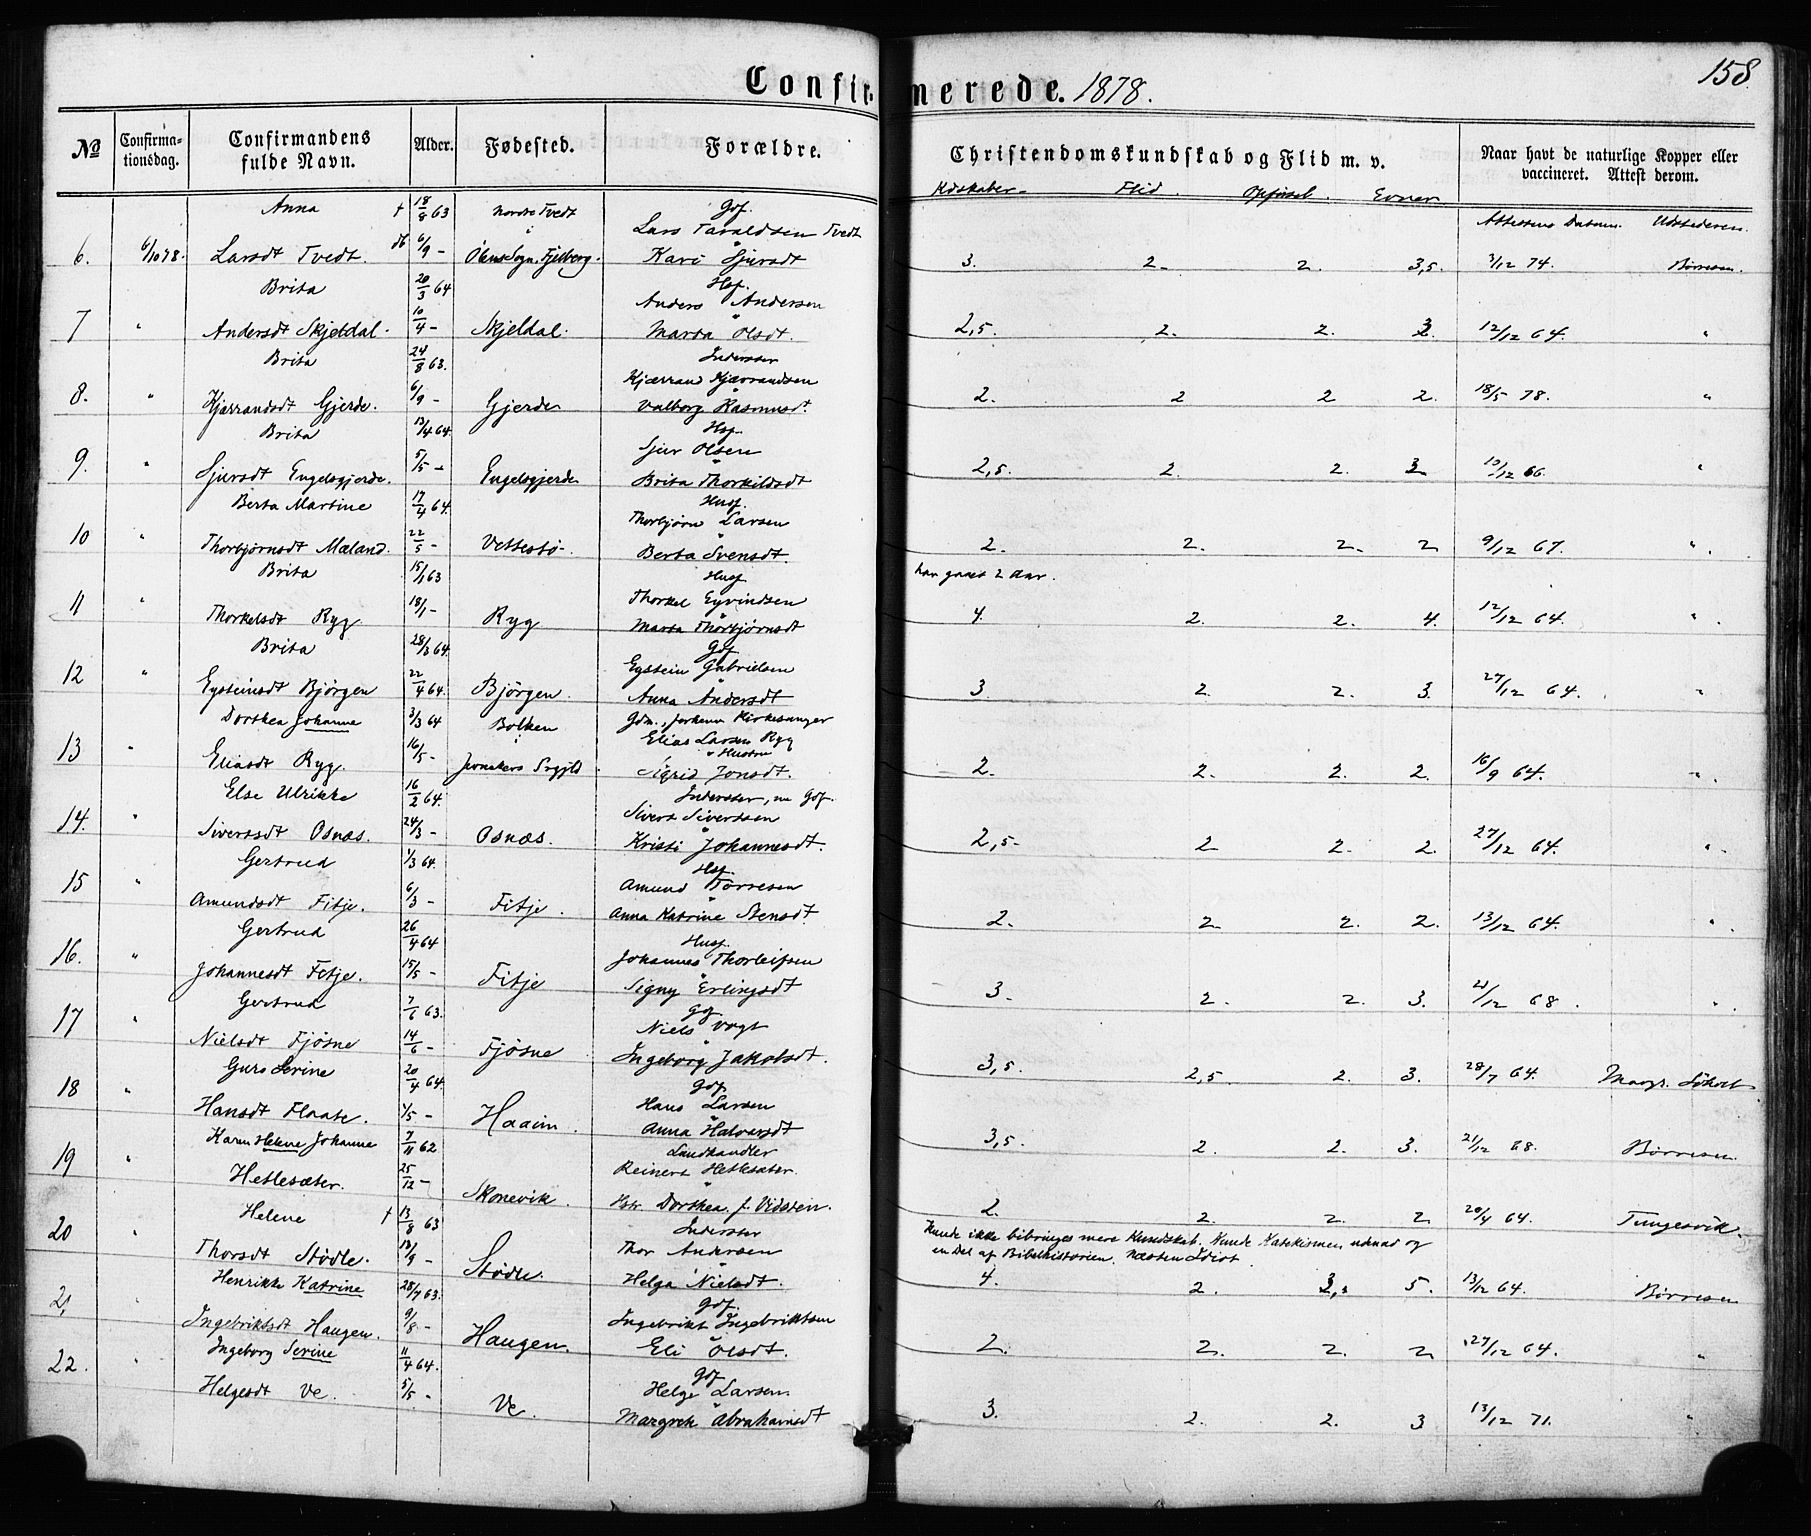 Confirmerede. 1878.
158
No
Confirmationsdag.
Confirmandens fulde Navn.
Alder.
Fødested.
Forældre.
Christendomskundskab og Flid m. v.
Naar havt de naturlige Kopper eller vaccineret. Attest derom.
Kdskaber Flid. Opførsel. Evner
Attestens Datum. Udstederen.
Anna † 18/8 63 Nordre Tvedt Gdf. Lars Taraldsen Tvedt
6. 6/10 78. Larsdt Tvedt. db 6/9 - Ølens Sogn, Fjelberg. Kari Sjursdt 3. 2. 2. 3,5. 3/12 74. Børresen.
Brita 20/3 64 Hsf. Anders Andersen
7 " Andersdt Skjeldal. 10/4 - Skjeldal. Marta Olsdt. 2,5. 2. 2. 3. 12/12 64. "
Brita 24/8 63. Inderster Kjærrand Kjærrandsen
8. " Kjærrandsdt Gjerde. 6/9 - Gjerde Valborg Rasmusdt. 2. 2 2 2. 18/5 78. "
Brita 13/4 64. Hsf. Sjur Olsen
9. " Sjursdt Engelsgjerde. 5/5 - Engelsgjerde Brita Thorkildsdt 2,5. 2. 2. 3 10/12 66. "
Berta Martine 17/4 64. Husf. Thorbjørn Larsen
10 " Thorbjørnsdt Mæland. 22/5 - Vettestø. Berta Svensdt. 2. 2. 2. 2 9/12 67. "
Brita 15/1 63 Husf. Thorkel Eyvindsen har gaaet 2 Aar.
11 " Thorkelsdt Ryg 18/1 - Ryg Marta Thorbjørnsdt 4. 2. 2. 4. 12/12 64. "
Brita 28/3 64. Gdf. Eystein Gabrielsen
12 " Eysteinsdt Bjørgen 22/4 64. Bjørgen. Anna Andersdt 3 2. 2. 3. 27/12 64. "
Dorthea Johanne 3/3 64 Bolken Gdm., Kirkesanger Elias Larsen Ryg
13 " Eliasdt Ryg. 16/5 - Jevnakers Hustru Sigrid Jonsdt. 2. 2. 2. 2. 16/9 64. "
Else Ulrikke 16/2 64. Inderster, nu Gdf. Sivert Sivertsen
14. " Sivertsdt Osnæs. 24/3 - Osnæs. Kristi Johannesdt. 2,5 2 2. 2. 27/12 64. "
Gertrud 1/3 64. Hsf. Amund Torresen
15 " Amundsdt Fitje. 6/3 - Fitje. Anna Katrine Stensdt 2. 2 2. 2. 13/12 64. "
Gertrud 26/4 64 Husf. Johannes Thorleifsen
16. " Johannesdt Fitje. 15/5 - Fitje Signy Erlingsdt 3. 2. 2. 3. 21/12 68. "
Gertrud 7/6 63. Gdf. Niels Vogt
17 " Nielsdt Fjøsne 14/6 - Fjøsne Ingeborg Jakobsdt. 3,5. 2,5. 2. 3. 28/7 64.
Guro Serine 20/4 64. Gdf. Hans Larsen
18 " Hansdt Flaate. 1/5 - Haaim. Anna Halvorsdt 3,5. 2. 2. 3. 21/12 68. Børresen
Karen Helene Johanne 7/11 62 Landhandler Reinert Hetlesæter.
19 " Hetlesæter. 25/12 - Skonevik. Hstr. Dorthea f. Vidsten. 2. 2. 2. 2 20/4 64. Tungesvik.
Helene † 13/8 63 Inderster Thor Andersen
Kunde ikke bibringes mere Kundskab. Kunde Katekismen udenad og
en Del af Bibelhistorien. Næsten Idiot.
20 " Thorsdt Stødle. 13/9 - Stødle. Helga Nielsdt. 4. 2. 5. 13/12 64. Børresen
Henrikke Katrine 28/7 63. Gdf. Ingebrikt Ingebriktsen
21 " Ingebriktsdt Haugen. 9/8 - Haugen. Eli Olsdt. 2. 2. 2. 2 27/12 64. "
Ingeborg Serine 11/4 64. Gdf. Helge Larsen
22. " Helgesdt Ve. 5/5 - Ve. Margrete Abrahamsdt 3. 2. 2. 3 13/12 71. "